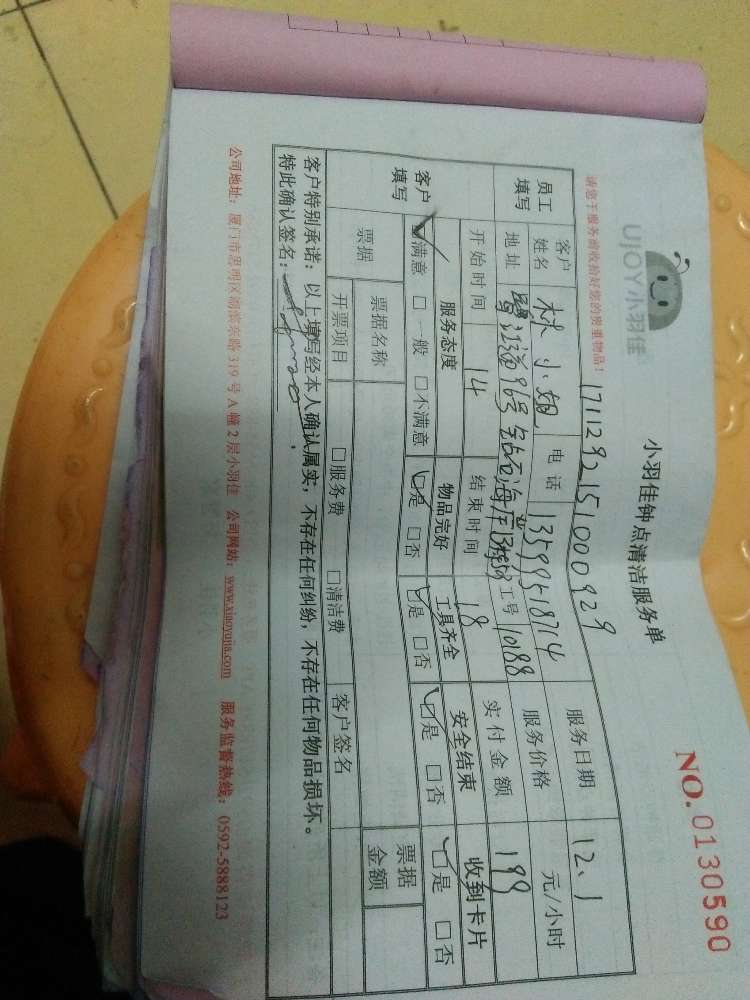 UJOY小羽佳
小羽佳钟点清洁服务单
NO.0130590
请您于服务前收拾好您的贵重物品！
1711292151000929
员工填写 客户姓名 林小姐 电话 13599518714 服务日期 12.1
地址 96号 工号 10188 服务价格 元/小时
开始时间 14 结束时间 18 实付金额 199
客户填写 服务态度 物品完好 工具齐全 安全结束 收到卡片
☑满意 □一般 □不满意 ☑是 □否 ☑是 □否 ☑是 □否 ☑是 □否
票据 票据名称 客户签名 票据金额
开票项目 □服务费 □清洁费
客户特别承诺：以上填写经本人确认属实，不存在任何纠纷，不存在任何物品损坏。
特此确认签名：
公司地址：厦门市思明区湖滨东路319号A幢2层小羽佳 公司网站：www.xiaoyujia.com 服务监督热线：0592-5888123